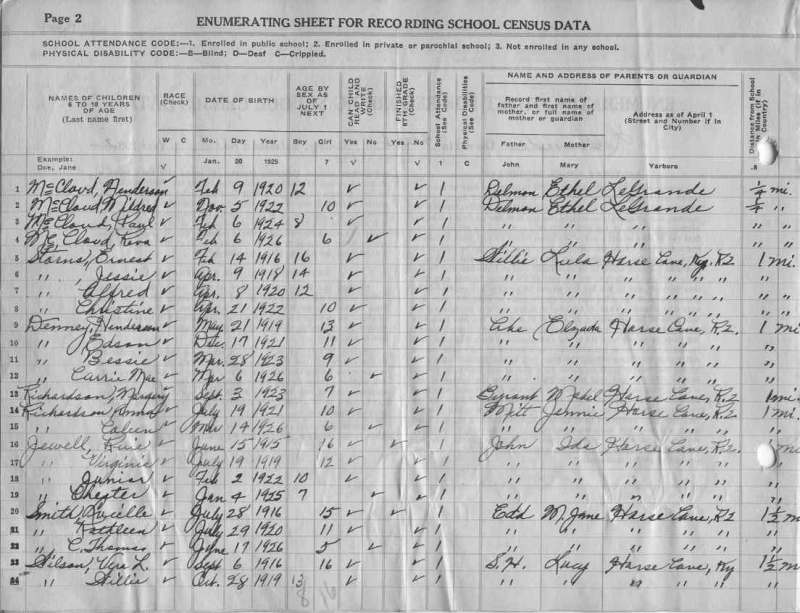 Page 2
ENUMERATING SHEET FOR RECORDING SCHOOL CENSUS DATA
SCHOOL ATTENDANCE CODE:—1. Enrolled in public school; 2. Enrolled in private or parochial school; 3. Not enrolled in any school.
PHYSICAL DISABILITY CODE:—B—Blind; D—Deaf C—Crippled.
NAMES OF CHILDREN 6 TO 18 YEARS OF AGE (Last name first) RACE (Check) DATE OF BIRTH AGE BY SEX AS OF JULY 1 NEXT CAN CHILD READ AND WRITE (Check) FINISHED 8TH GRADE (Check) School Attendance (See Code) Physical Disabilities (See Code) NAME AND ADDRESS OF PARENTS OR GUARDIAN Distance from School in Miles (if in Country)
Record first name of father and first name of mother, or full name of mother or guardian Address as of April 1 (Street and Number if In City)
W C Mo. Day Year Boy Girl Yes No Yes No Father Mother
Example: Doe, Jane √ Jan. 20 1925 7 √ √ 1 C John Mary Yarboro .8
1 McCloud, Henderson ✓ Feb 9 1920 12 ✓ ✓ 1 Delmon Ethel LeGrande 1/4 mi.
2 McCloud Mildred ✓ Nov. 5 1922 10 ✓ ✓ 1 Delmon Ethel LeGrande 1/4 "
3 McCloud, Paul ✓ Feb 6 1924 8 ✓ ✓ 1 " " " " "
4 McCloud, ✓ Feb 6 1926 6 ✓ ✓ 1 " " " " "
5 Starns, Ernest ✓ Feb 14 1916 16 ✓ ✓ 1 Willie Lula Horse Cave, Ky. R2 1 mi.
6 " Jessie ✓ Apr. 9 1918 14 ✓ ✓ 1 " " " " " " "
7 " Alfred ✓ Apr. 8 1920 12 ✓ ✓ 1 " " " " " " "
8 " Christine ✓ Apr. 21 1922 10 ✓ ✓ 1 " " " " " " "
9 Denney, Henderson ✓ May 21 1919 13 ✓ ✓ 1 Horse Cave, R2. 1 mi
10 " Edson ✓ Dec. 17 1921 11 ✓ ✓ 1 " " " " " "
11 " Bessie ✓ Mar. 28 1923 9 ✓ ✓ 1 " " " " " "
12 " Carrie Mae ✓ Mar 6 1926 6 ✓ ✓ 1 " " " " " "
13 Richardson, Margery ✓ Sept. 3 1923 7 ✓ ✓ 1 Mabel Horse Cave, R.2 1 mi.
14 Richardson, ✓ July 19 1921 10 ✓ ✓ 1 Mitt Jennie Horse Cave, R2 1 mi.
15 " ✓ Mar 14 1926 6 ✓ ✓ 1 " " " " " "
16 Jewell, ✓ June 15 1915 16 ✓ ✓ 1 John Ida Horse Cave, R2. 1 mi
17 " Virginia ✓ July 19 1919 12 ✓ ✓ 1 " " " " " "
18 " Junior ✓ Feb 2 1922 10 ✓ ✓ 1 " " " " " "
19 " Chester ✓ Jan 4 1925 7 ✓ ✓ 1 " " " " " "
20 Smith, Lucille ✓ July 28 1916 15 ✓ ✓ 1 Edd M. Jane Horse Cave, R2 1 1/2 m
21 " Kathleen ✓ July 29 1920 11 ✓ ✓ 1 " " " " " "
22 " C. Thomas ✓ June 17 1926 5 ✓ ✓ 1 " " " " " "
23 Wilson, Vera L. ✓ Sept 6 1916 16 ✓ ✓ 1 S. H. Lucy Horse Cave, Ky 1 1/2 m
24 " Willie ✓ Oct. 28 1919 13 ✓ ✓ 1 " " " " "